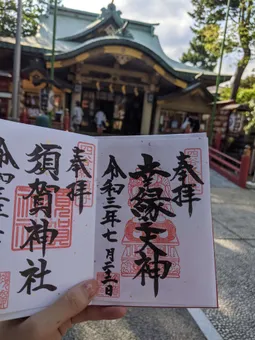 奉拝
幸縁天神
令和三年七月二三日
奉拝
須賀神社